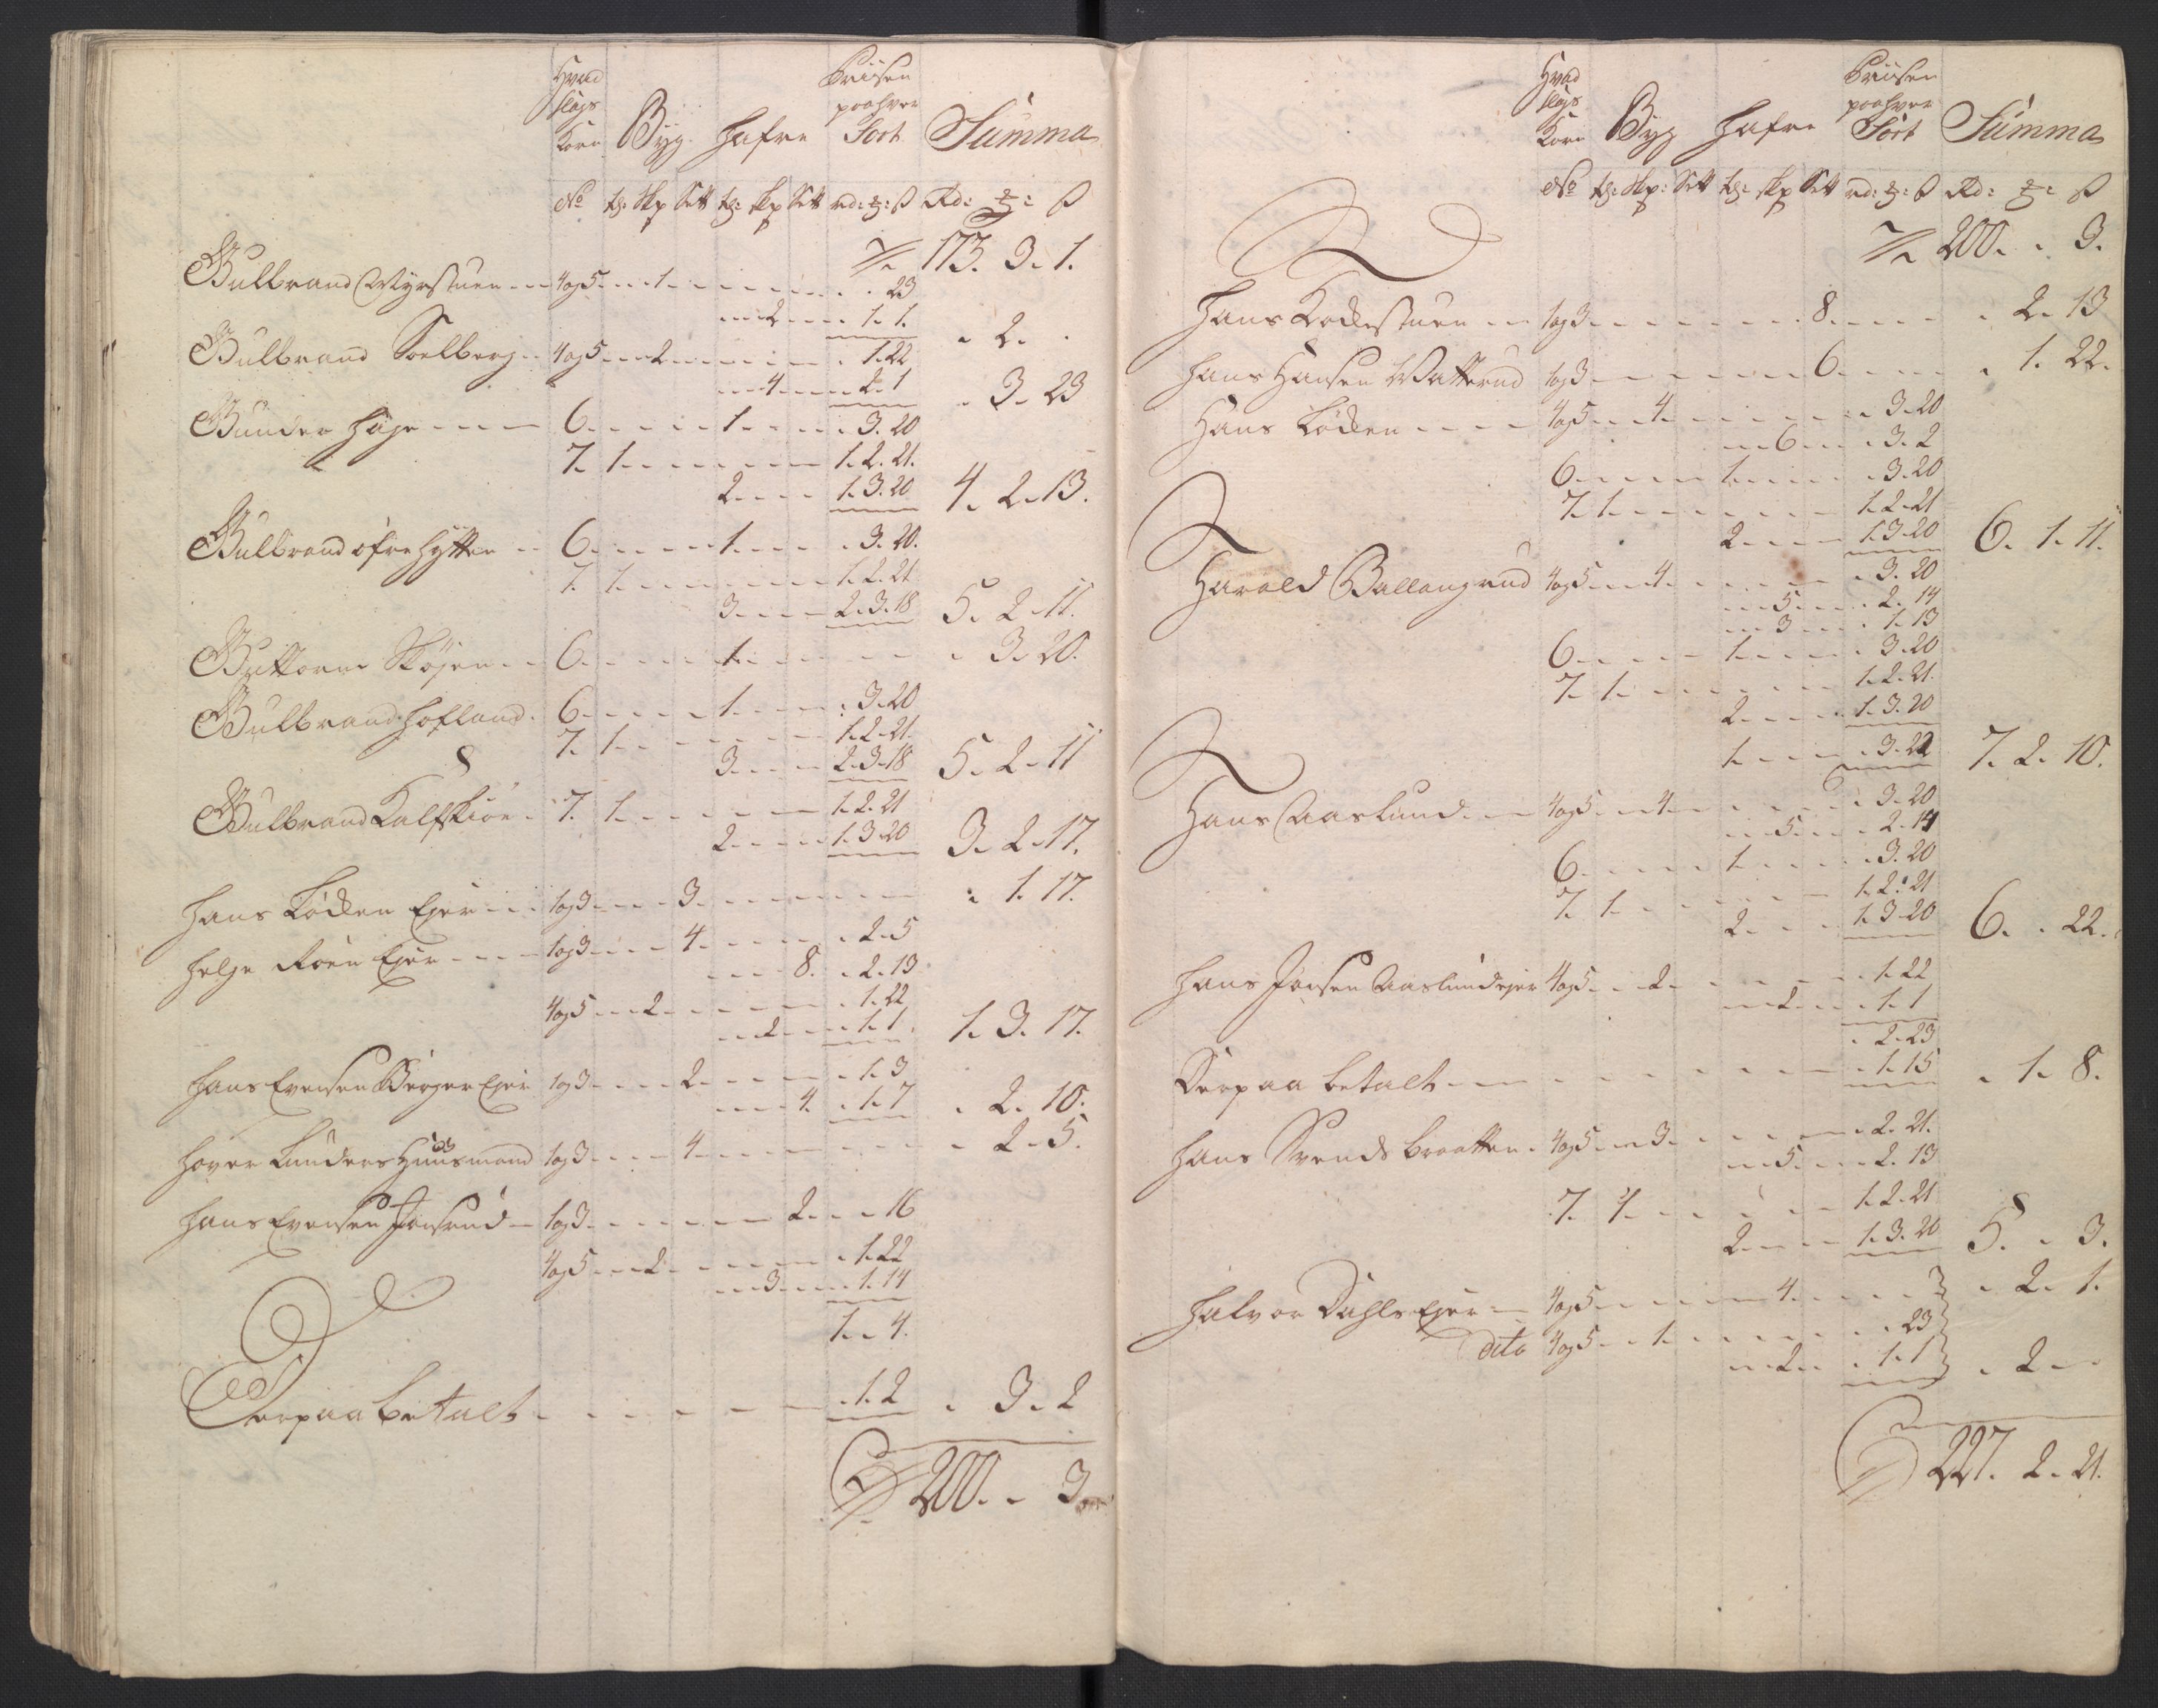 Hvad slags Korn Byg. Hafre Priisen paa hver Sort Summa
No td: Skp Sett td: skp Sett rd: ß Rd: ß
173. 3. 1.
Gulbrand Myrstuen 4og5 1 23
2 1. 1. 2.
Gulbrand Soelberg 4og5 2 1. 22
4 2. 1 3. 23
Gunder Hage 6. 1. 3. 20
7. 1. 1. 2. 21.
2. 1. 3. 20 4. 2. 13.
Gulbrand øfre Hytten 6. 1. 3. 20.
7. 1. 1. 2. 21
3. 2. 3. 18 5. 2. 11.
Guttorm Skøjen 6. 1. 3. 20.
Gulbrand Hofland 6. 1. 3. 20
7. 1. 1. 2. 21.
3. 2. 3. 18 5. 2. 11
Gulbrand Kalfskiøn 7. 1. 1. 2. 21
2. 1. 3. 20 3. 2. 17.
Hans Lødken Ejer 1og3 3. 1. 17.
Helge Roen Ejer 1og3 4. 2. 5
8. 2. 13
4og5 2. 1. 22
2. 1. 1. 1. 3. 17.
Hans Evensen Berger Ejer 1og3 2. 1. 3
4. 1. 7 2. 10.
Hover Lunders Huusmand 1og3 4. 2. 5.
Hans Evensen Jonsrud 1og3 2. 16
4og5 2. 1. 22
3. 1. 14
1. 4.
Derpaa betalt 1. 2 3. 2
200. 3
Hvad slags Korn Byg Hafre Priisen paa hver Sort Summa
No td: Skp: Sett td: skp Sett rd: ß Rd: ß
200. 3.
Hans Kokkestuen 1og3 8. 2. 13
Hans Hansen Watterud 1og3 6. 1. 22.
Hans Lødken 4og5 4. 3. 20
6. 3. 2
6. 1. 3. 20
7. 1. 1. 2. 21
2. 1. 3. 20 6. 1. 11.
Harald Ballangrud 4og5 4. 3. 20
5. 2. 14
3 1. 13
6. 1. 3. 20
7. 1. 1. 2. 21.
2. 1. 3. 20
1. 3. 22 7. 2. 10.
Hans Aaslund 4og5 4. 3. 20
5. 2. 14
6. 1. 3. 20
7. 1. 1. 2. 21
2. 1. 3. 20 6. 22.
Hans Joensen Aaslundejer 4og5 2. 1. 22
2. 1. 1
2. 23
Derpaa betalt 1. 15 1. 8.
Hans Svends braatten 4og5 3. 2. 21.
5. 2. 13
7. 1. 1. 2. 21
2. 1. 3. 20 5. 3.
Halvor Dahls Ejer 4og5 4. 2. 1.
dito 4og5 1. 23
2. 1. 1 2
227. 2. 21.